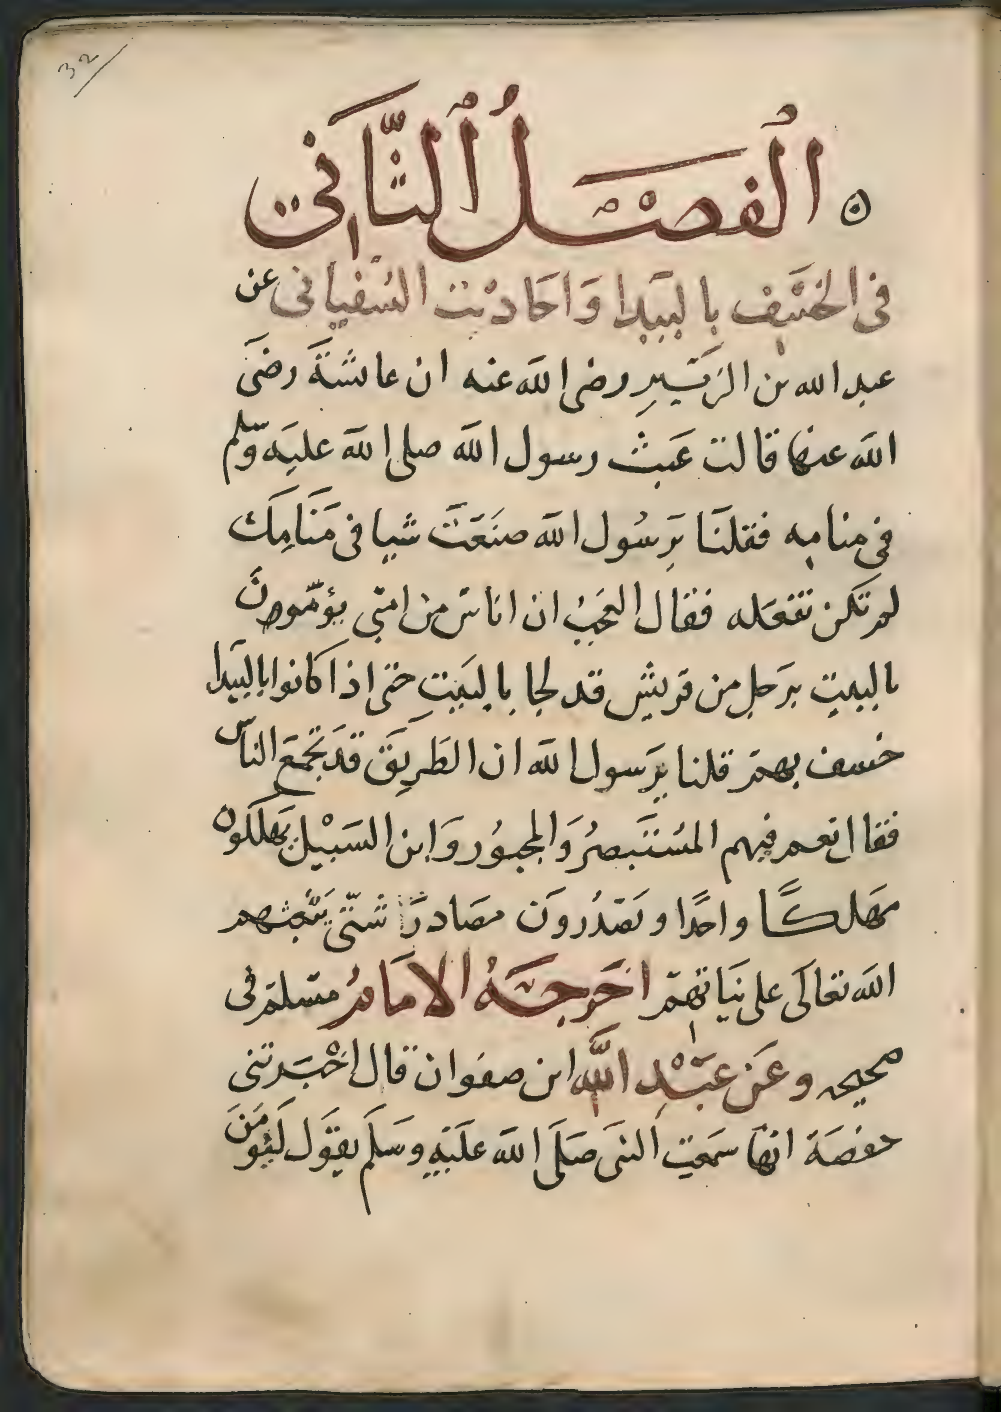 32
ه الفَصْلُ الثَّاني
في الخسْف بالبَيدا وَاحَاديْث السُّفياني عن
عبد الله بن الزبَيرِ رضى الله عنه ان عايشةَ رضىَ
الله عنها قالت عَبث رسول الله صلى الله عليَه وَسلم
في منامه فقلنَا يَرسُول الله صنَعَتَ شيا في مَنَامِكَ
لم تكن تفعَله فقال العجَبُ ان اناسًا من امتى يؤمّونَ
بالبيت برَجلٍ من قريش قد لجا بالبَيتِ حتى اذا كانوا بالبَيَدا
خسف بهم قلنا يرَسول الله ان الطَريقَ قد تجمَع الناسَ
فقال نعم فيهم المسُتَبصرُ وَالمجبوُر وَابن السَبيْل يَهلَكون
مَهلكًا واحدًا وَيصَدُرونَ مصَادرًا شتّى يَبْعَثهم
الله تعالَى على نيَاتهمْ اخَرجَهُ الامَامُ مسلم في
صحيحه وعَن عبْدِ اللّه ابن صفوان قال اخْبَرتنى
حفصَة انهَا سَمعَتِ النبىَ صَلَى الله علَيَه وسَلم يقوَل لَيَؤمَنَ